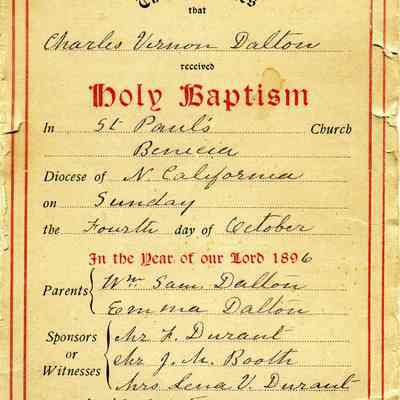 that
Charles Vernon Dalton
received
Holy Baptism
In St Paul's Church
Benicia
Diocese of N. California
on Sunday
the Fourth day of October
In the Year of our Lord 1896
Parents Wm Sam Dalton
Emma Dalton
Sponsors or Witnesses
Mr F. Durant
Mr J. M. Booth
Mrs Lena V. Durant